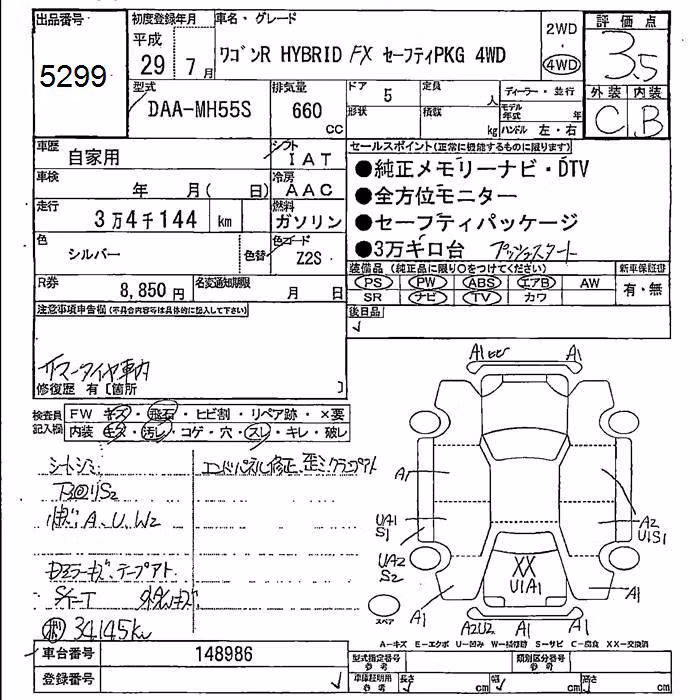 出品番号
5299
初度登録年月
平成
29年 7月
車名・グレード
ワゴンR HYBRID FX セーフティPKG 4WD
2WD
・
4WD
評価点
3.5
外装 内装
C B
型式
DAA-MH55S
排気量
660
cc
ドア 5
定員 人
形状
積載 kg
ディーラー・並行
モデル年式 年
ハンドル 左・右
車歴
自家用
シフト
IAT
車検
年 月( 日)
冷房
AAC
走行
3万4千144 km
燃料
ガソリン
色
シルバー
色替
色コード
Z2S
R券
8,850円
名変通知期限
月 日
セールスポイント(正常に機能するものに限ります)
●純正メモリーナビ・DTV
●全方位モニター
●セーフティパッケージ
●3万キロ台 プッシュスタート
装備品(純正品に限り○をつけてください)
新車保証書
PS PW ABS エアB AW
SR ナビ TV カワ
有・無
後日品
注意事項申告欄(不具合内容等は具体的に記入して下さい)
修復歴 有〔箇所 〕
検査員記入欄
FW キズ・飛石・ヒビ割・リペア跡・×要
内装 キズ・汚レ・コゲ・穴・スレ・キレ・破レ
シートシミ
エンドパネル修正、歪ミ クランプアト
A、U、W2
34145km
A1
A1
A1
A1
UA1
S1
UA2
S2
A2
U1S1
XX
U1A1
A1
A1
A2U2
A1
A1
スペア
A-キズ E-エクボ U-凹み W-補修跡 S-サビ C-腐食 XX-交換済
車台番号
148986
登録番号
型式指定番号
参考
類別区分番号
参考
車庫証明用
参考
長さ cm
幅 cm
高さ cm